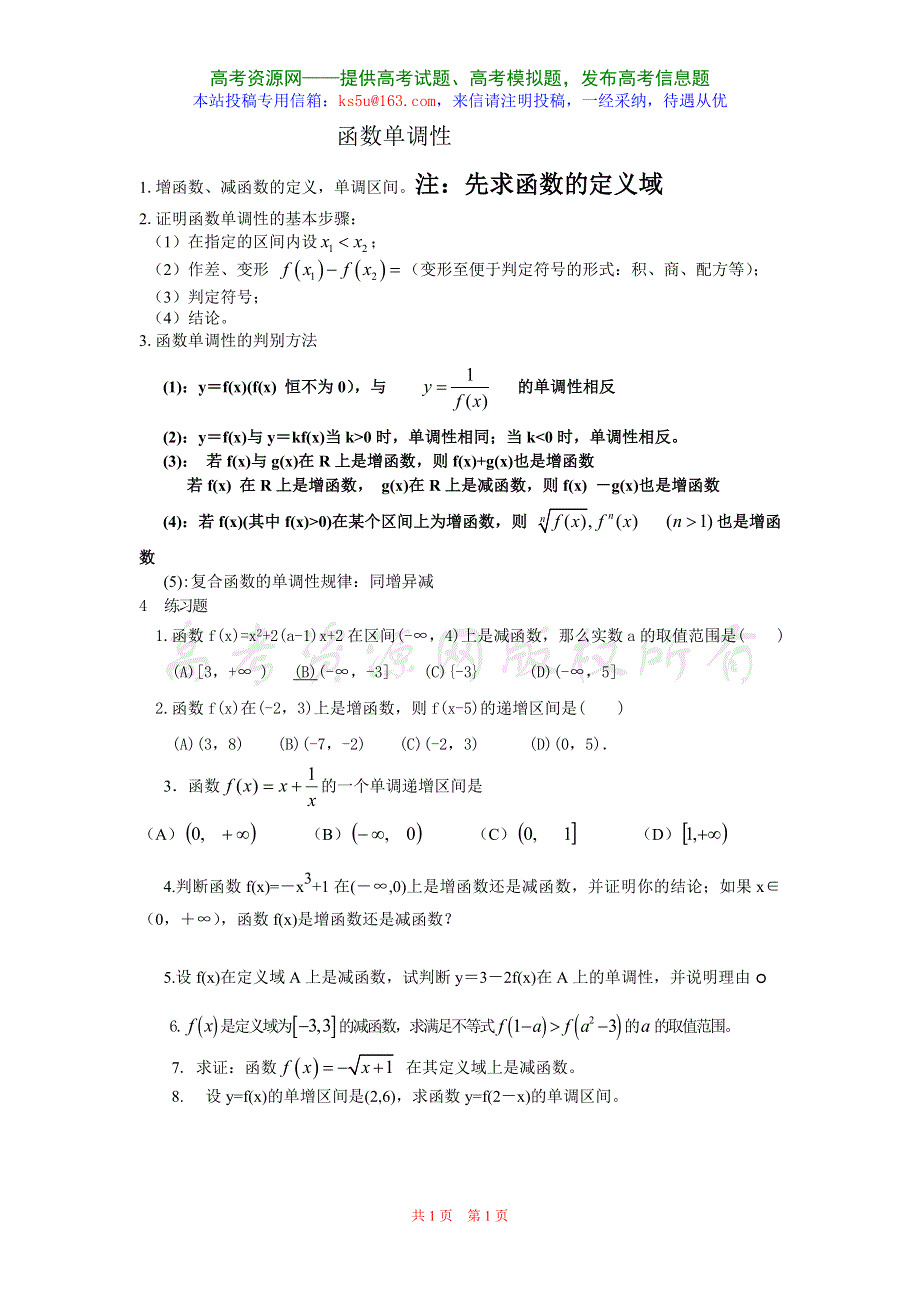 高考资源网——提供高考试题、高考模拟题，发布高考信息题
本站投稿专用信箱：ks5u@163.com，来信请注明投稿，一经采纳，待遇从优
函数单调性
1. 增函数、减函数的定义，单调区间。注：先求函数的定义域
2. 证明函数单调性的基本步骤：
（1）在指定的区间内设 x₁ < x₂；
（2）作差、变形 f(x₁)−f(x₂)=（变形至便于判定符号的形式：积、商、配方等）；
（3）判定符号；
（4）结论。
3. 函数单调性的判别方法
(1)：y＝f(x)(f(x) 恒不为 0），与 y = 1/f(x) 的单调性相反
(2)：y＝f(x)与 y＝kf(x)当 k>0 时，单调性相同；当 k<0 时，单调性相反。
(3)： 若 f(x)与 g(x)在 R 上是增函数，则 f(x)+g(x)也是增函数
若 f(x) 在 R 上是增函数， g(x)在 R 上是减函数，则 f(x) －g(x)也是增函数
(4)：若 f(x)(其中 f(x)>0)在某个区间上为增函数，则 ⁿ√f(x), fⁿ(x) (n>1) 也是增函
数
(5):复合函数的单调性规律：同增异减
4 练习题
1.函数 f(x)=x²+2(a-1)x+2 在区间(-∞,4)上是减函数，那么实数 a 的取值范围是( )
(A)[3,+∞ ) (B)(-∞,-3] (C){-3} (D)(-∞,5]
2.函数 f(x)在(-2,3)上是增函数，则 f(x-5)的递增区间是( )
(A)(3,8) (B)(-7,-2) (C)(-2,3) (D)(0,5).
3．函数 f(x) = x + 1/x 的一个单调递增区间是
（A）(0, +∞) （B）(−∞, 0) （C）(0, 1] （D）[1,+∞)
4.判断函数 f(x)=－x³+1 在(－∞,0)上是增函数还是减函数，并证明你的结论；如果 x∈
（0，＋∞），函数 f(x)是增函数还是减函数？
5.设 f(x)在定义域 A 上是减函数，试判断 y＝3－2f(x)在 A 上的单调性，并说明理由 o
6. f(x) 是定义域为[−3,3]的减函数，求满足不等式 f(1−a) > f(a²−3) 的 a 的取值范围。
7. 求证：函数 f(x) = −√(x+1) 在其定义域上是减函数。
8. 设 y=f(x)的单增区间是(2,6)，求函数 y=f(2－x)的单调区间。
高考资源网版权所有
共 1 页 第 1 页